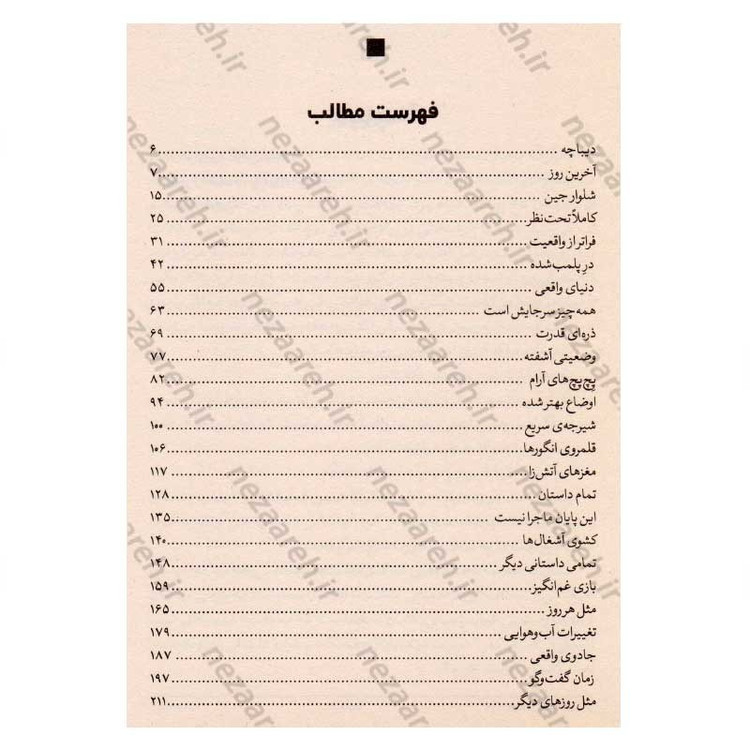 فهرست مطالب
دیباچه ........ ۶
آخرین روز ........ ۷
شلوار جین ........ ۱۵
کاملاً تحت‌نظر ........ ۲۵
فراتر از واقعیت ........ ۳۱
درِ پلمب‌شده ........ ۴۲
دنیای واقعی ........ ۵۵
همه‌چیز سر جایش است ........ ۶۳
ذره‌ای قدرت ........ ۶۹
وضعیتی آشفته ........ ۷۷
پچ‌پچ‌های آرام ........ ۸۲
اوضاع بهتر شده ........ ۹۴
شیرجه‌ی سریع ........ ۱۰۰
قلمروی انگورها ........ ۱۰۶
مغزهای آتش‌زا ........ ۱۱۷
تمام داستان ........ ۱۲۸
این پایان ماجرا نیست ........ ۱۳۵
کشوی آشغال‌ها ........ ۱۴۰
تمامی داستانی دیگر ........ ۱۴۸
بازی غم‌انگیز ........ ۱۵۹
مثل هر روز ........ ۱۶۵
تغییرات آب‌وهوایی ........ ۱۷۹
جادوی واقعی ........ ۱۸۷
زمان گفت‌وگو ........ ۱۹۷
مثل روزهای دیگر ........ ۲۱۱
nezaareh.ir